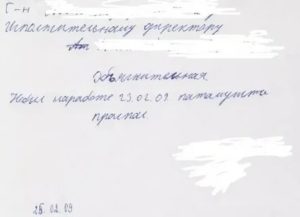 Г-н
Исполнительному директору
Объяснительная
Небыл наработе 23.02.09. патамушта
проспал
25.02.09